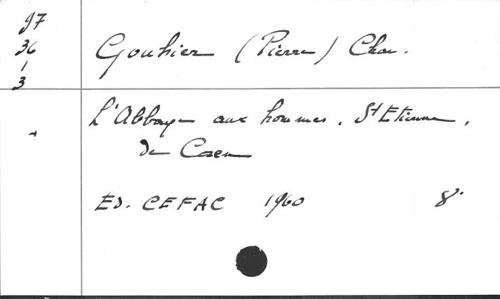 97
36
1
3
Gouhier (Pierre) Chan.
L'Abbaye aux hommes. St Etienne,
de Caen
ED. CEFAC 1960 8°